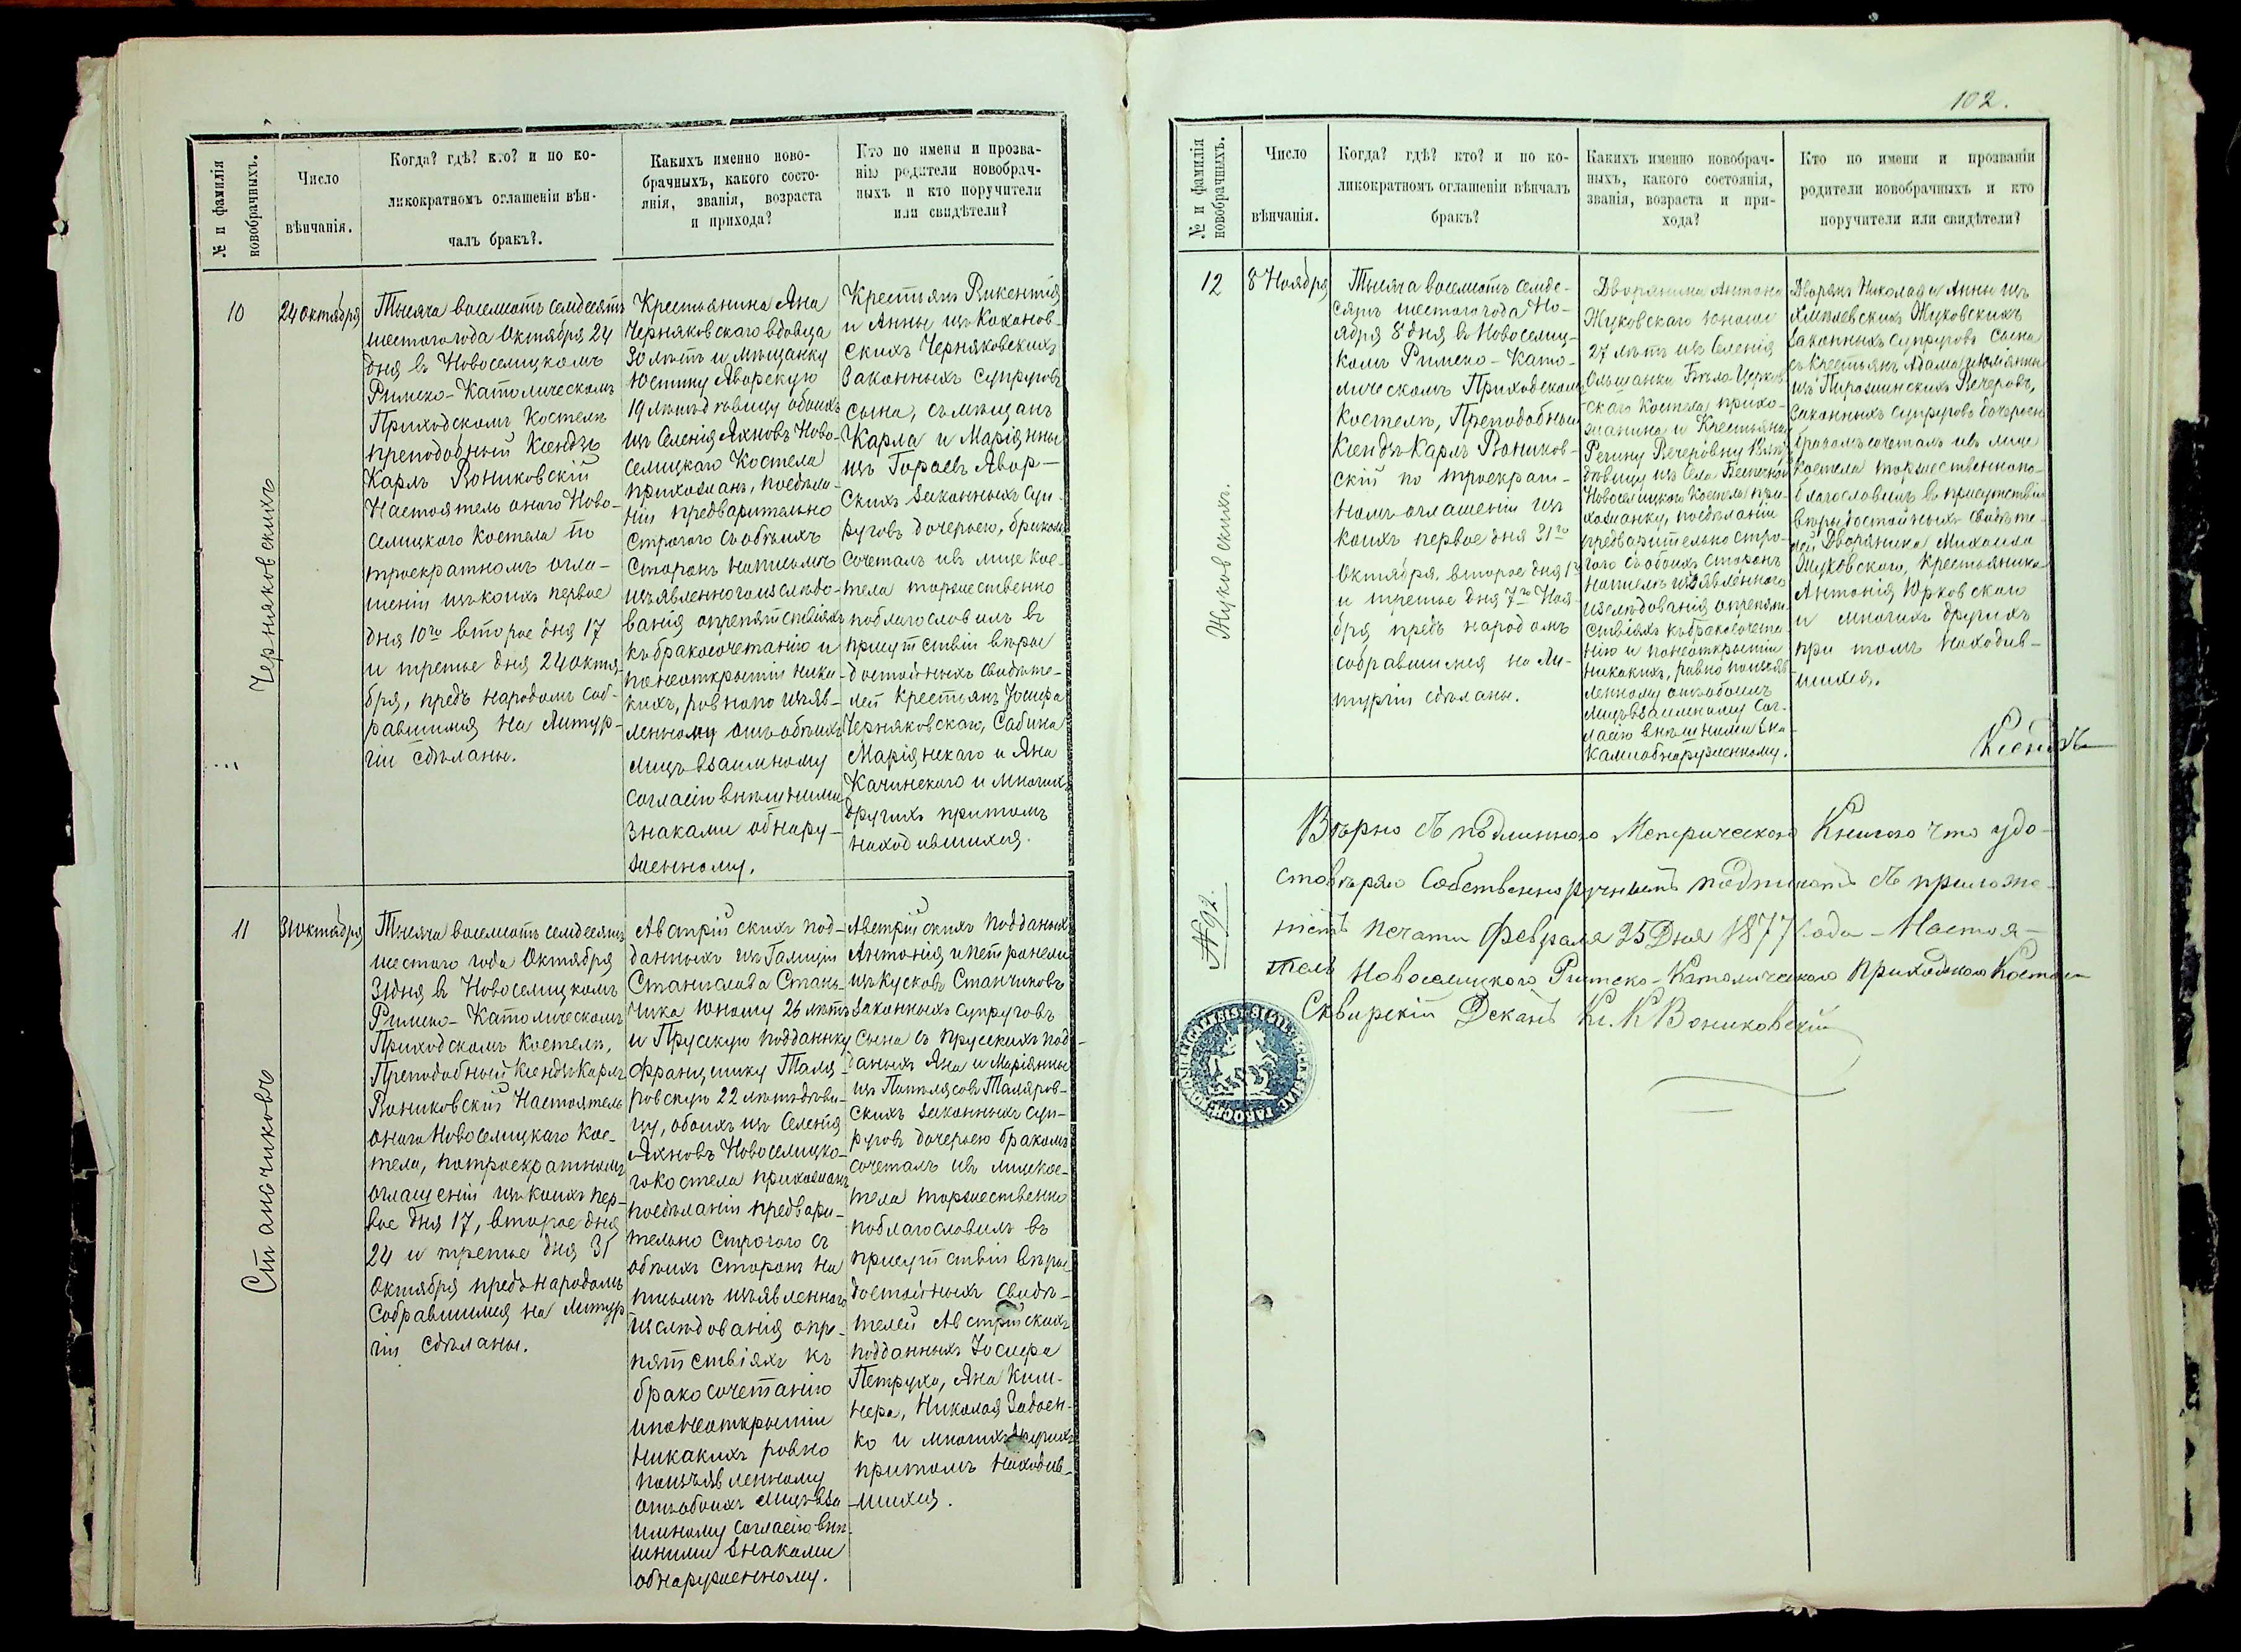 № и фамилія новобрачныхъ.
Число вѣнчанія.
Когда? гдѣ? кто? и по ко-
ликократномъ оглашеніи вѣн-
чалъ бракъ?.
Какихъ именно ново-
брачныхъ, какого состо-
янія, званія, возраста
и прихода?
Кто по имени и прозва-
нію родители новобрач-
ныхъ и кто поручители
или свидѣтели?
10
Черняковскихъ
24 октября
Тысяча восемсотъ семдесятъ
шестого года Октября 24
дня въ Новоселицкомъ
Римско-Католическомъ
Приходскомъ Костелѣ
преподобный Ксендзъ
Карлъ Вониковскій
Настоятель оного Ново-
селицкого Костела по
троекратномъ огла-
шеніи изъ коихъ первое
дня 10го второе дня 17
и третье дня 24 октя-
бря, предъ народомъ соб-
равшимся на Литур-
гіи сдѣланы.
Крестьянина Яна
Черняковскаго вдовца
30 лѣтъ и мѣщанку
Юстину Яворскую
19 лѣтъ дѣвицу обоихъ
изъ Селенія Яхновъ Ново-
селицкаго Костела
прихожанъ, посдѣла-
ніи предварительно
строгого съ обѣихъ
Сторонъ на письмѣ
изъявленного изслѣдо-
ванія о препятствіяхъ
къ бракосочетанію и
по неоткрытіи ника-
кихъ, равно по изъяв-
ленному отъ обѣихъ
лицъ взаимному
согласію внѣшними
знаками обнару-
женному.
Крестьянъ Викентія
и Анны изъ Кохонов-
скихъ Черняковскихъ
Законныхъ Супруговъ
сына, съ мѣщанъ
Карла и Маріянны
изъ Гораевъ Явор-
скихъ законныхъ Суп-
руговъ дочерью, бракомъ
сочеталъ ивъ лице Кос-
тела торжественно
поблагословилъ въ
присутствіи вѣрое
достойныхъ Свидѣте-
лей Крестьянъ Іосифа
Черняковскаго, Сабина
Маріянскаго и Яна
Качинскаго и многихъ
другихъ притомъ
находившихся.
11
Станчиковъ
31 октября
Тысяча восемсотъ семдесятъ
шестого года Октября
31 дня въ Новоселицкомъ
Римско-Католическомъ
Приходскомъ Костелѣ,
Преподобный Ксендзъ Карлъ
Вониковскій Настоятель
оного Новоселицкаго Кос-
тела, потроекратномъ
оглашеніи изъ коихъ пер-
вое дня 17, второе дня
24 и третье дня 31
октября предъ народомъ
Собравшимся на Литур-
гіи сдѣланы.
Австрійскихъ под-
данныхъ изъ Галиціи
Станислава Стань-
чика юношу 26 лѣтъ
и Прусскую подданную
Францишку Таля-
ровскую 22 лѣтъ дѣви-
цу, обоихъ изъ Селенія
Яхновъ Новоселицко-
го Костела прихожанъ
посдѣланіи предвари-
тельно строгого съ
обѣихъ сторонъ на
письмѣ изъявленного
изслѣдованія о пре-
пятствіяхъ къ
бракосочетанію
и по неоткрытіи
никакихъ равно
поизъявленному
отъ обоихъ лицъ вза-
имному согласію внѣ-
шними знаками
обнаруженному.
Австрійскихъ подданыхъ
Антонія и Петронели
изъ Кусковъ Станчиковъ
законныхъ супруговъ
Сына съ Прусскихъ под-
даныхъ Яна и Маріянны
изъ Таляров-
скихъ законныхъ суп-
руговъ дочерью бракомъ
сочеталъ ивъ лице кос-
тела торжественно
поблагословилъ въ
присутствіи вѣрое
достойныхъ свидѣ-
телей Австрійскихъ
подданныхъ Іосифа
Петруха, Яна Ким-
нера, Николая Задоен-
ко и многихъ другихъ
притомъ находив-
шихся.
102.
№ и фамилія новобрачныхъ.
Число вѣнчанія.
Когда? гдѣ? кто? и по ко-
ликократномъ оглашеніи вѣнчалъ
бракъ?
Какихъ именно новобрач-
ныхъ, какого состоянія,
званія, возраста и при-
хода?
Кто по имени и прозваніи
родители новобрачныхъ и кто
поручители или свидѣтели?
12
Жуковскихъ.
8 Ноября
Тысяча восемсотъ семде-
сятъ шестого года Но-
ября 8 дня въ Новоселиц-
комъ Римско-Като-
лическомъ Приходскомъ
Костелѣ, Преподобный
Ксендзъ Карлъ Воников-
скій по троекрат-
номъ оглашеніи изъ
коихъ первое дня 31го
Октября, второе дня 1го
и третье дня 7го Ноя-
бря предъ народомъ
собравшимся на Ли-
тургіи сдѣланы.
Дворянина Антона
Жуковскаго юношу
27 лѣтъ изъ Селенія
Ольшанки Бѣло-Церков-
скаго Костела прихо-
жанина и Крестьянку
Регину Вечеровну
дѣвицу изъ Села
Новоселицкого Костела при-
хожанку, посдѣланіи
предварительно стро-
гого съ обоихъ сторонъ
на письмѣ изъявленного
изслѣдованія о препят-
ствіяхъ къ бракосочета-
нію и по неоткрытіи
никакихъ, равно поизъяв-
ленному отъ обоихъ
лицъ взаимному сог-
ласію внѣшними зна-
ками обнаруженному.
Дворянъ Николая и Анны изъ
Хмѣлевскихъ Жуковскихъ
законныхъ супруговъ сына
съ Крестьянъ Адама и Маріянны
изъ Вечеровъ,
законныхъ супруговъ дочерью
бракомъ сочеталъ ивъ лице
Костела торжественно по-
благословилъ въ присутствіи
вѣрыдостойныхъ свидѣте-
лей Дворянина Михаила
Жуховского, Крестьянина
Антонія Юрковского
и многихъ другихъ
при томъ находив-
шихся.
Вѣрно съ подлинною Метрическою Книгою что удо-
стовѣряю Собственноручнымъ подписомъ съ приложе-
ніемъ печати Февраля 25 Дня 1877 года - Настоя-
тель Новоселицкого Римско-Католического Приходского Костела
Сквирскій Деканъ Кс. К Вониковскій
№ 92.